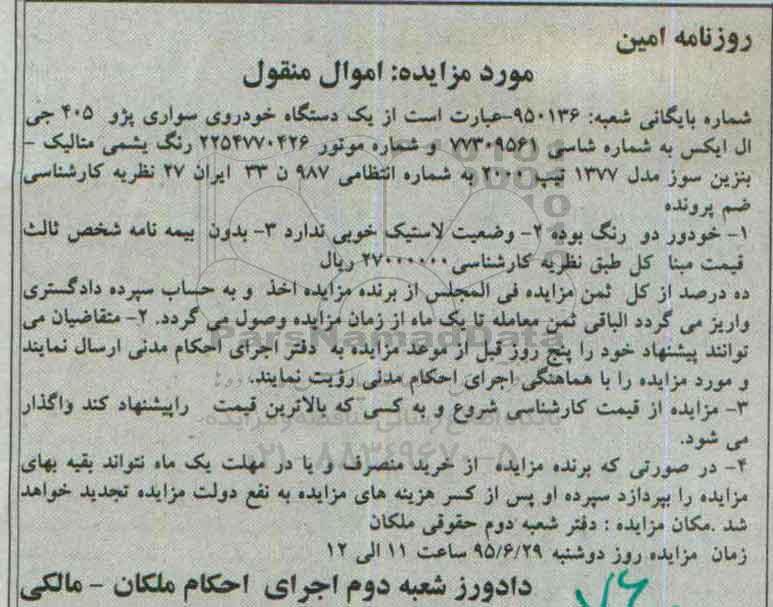 روزنامه امین
مورد مزایده: اموال منقول
شماره بایگانی شعبه: ۹۵۰۱۳۶-عبارت است از یک دستگاه خودروی سواری پژو ۴۰۵ جی
ال ایکس به شماره شاسی ۷۷۳۰۹۵۶۱ و شماره موتور ۲۲۵۴۷۷۰۴۲۶ رنگ یشمی متالیک -
بنزین سوز مدل ۱۳۷۷ تیپ ۲۰۰۰ به شماره انتظامی ۹۸۷ ن ۳۳ ایران ۲۷ نظریه کارشناسی
ضم پرونده
۱- خودور دو رنگ بوده ۲- وضعیت لاستیک خوبی ندارد ۳- بدون بیمه نامه شخص ثالث
قیمت مبنا کل طبق نظریه کارشناسی ۲۷۰۰۰۰۰۰ ریال
ده درصد از کل ثمن مزایده فی المجلس از برنده مزایده اخذ و به حساب سپرده دادگستری
واریز می گردد الباقی ثمن معامله تا یک ماه از زمان مزایده وصول می گردد. ۲- متقاضیان می
توانند پیشنهاد خود را پنج روز قبل از موعد مزایده به دفتر اجرای احکام مدنی ارسال نمایند
و مورد مزایده را با هماهنگی اجرای احکام مدنی رؤیت نمایند.
۳- مزایده از قیمت کارشناسی شروع و به کسی که بالاترین قیمت راپیشنهاد کند واگذار
می شود.
۴- در صورتی که برنده مزایده از خرید منصرف و یا در مهلت یک ماه نتواند بقیه بهای
مزایده را بپردازد سپرده او پس از کسر هزینه های مزایده به نفع دولت مزایده تجدید خواهد
شد .مکان مزایده : دفتر شعبه دوم حقوقی ملکان
زمان مزایده روز دوشنبه ۹۵/۶/۲۹ ساعت ۱۱ الی ۱۲
دادورز شعبه دوم اجرای احکام ملکان - مالکی
ParsNamadData
۰۲۱-۸۸۳۴۹۶۷۰-۵